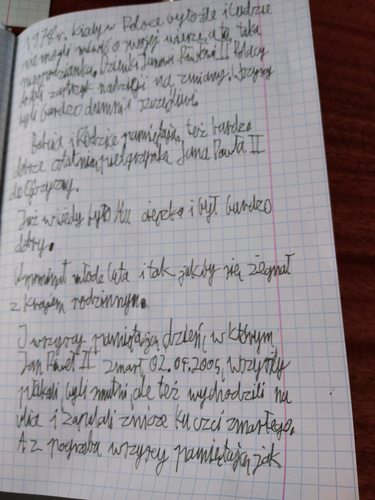 1978r. kiedy w Polsce było źle i ludzie
nie mogli mówić o swojej wierze, a tu taka
niespodzianka. Dzięki Janowi Pawłowi II Polacy
nadzieji na zmiany. Wszyscy
byli bardzo dumni i szczęśliwi.
Babcia i Rodzice pamiętają, też bardzo
dobrze ostatnią pielgrzymkę Jana Pawła II
do Ojczyzny.
Już wtedy było Mu ciężko i był bardzo
dobry.
Wspominał młode lata i tak jakby się żegnał
z krajem rodzinnym.
I wszyscy pamiętają dzień, w którym
Jan Paweł II zmarł 02.04.2005, wszyscy
płakali byli smutni ale też wychodzili na
ulice i zapalali znicze ku czci zmarłego.
A z pogrzebu wszyscy pamiętają jak